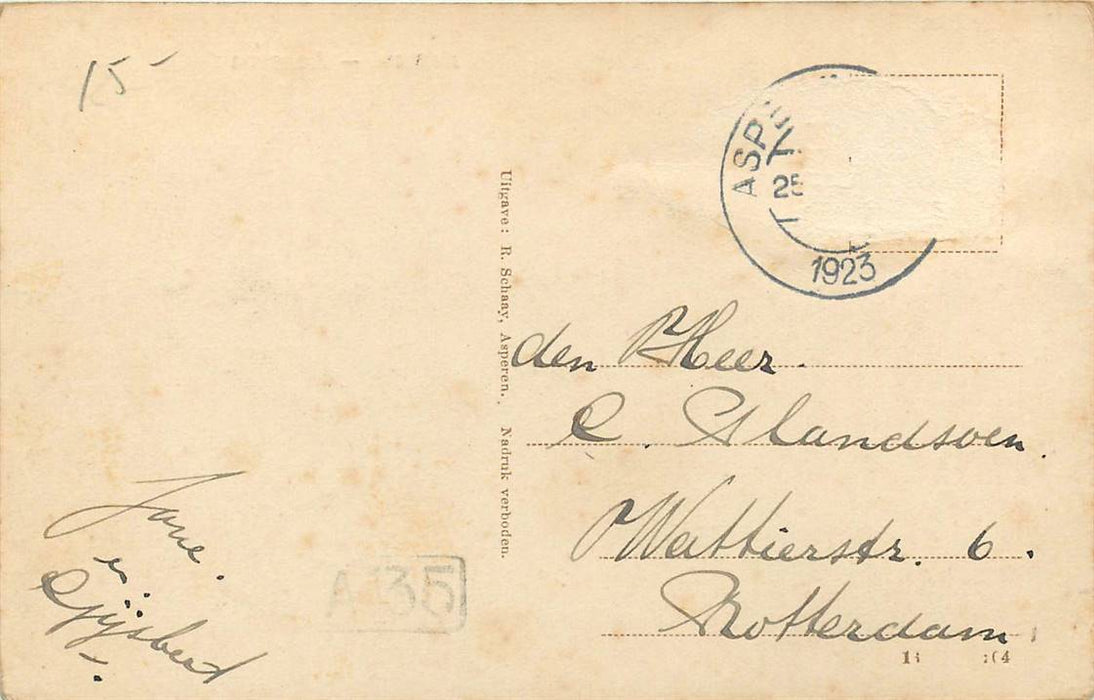 15
ASPE
25
1923
Uitgave: R. Schaay, Asperen. Nadruk verboden.
den Heer
C.
Wattierstr. 6.
Rotterdam
en
Gijsbert
A 35